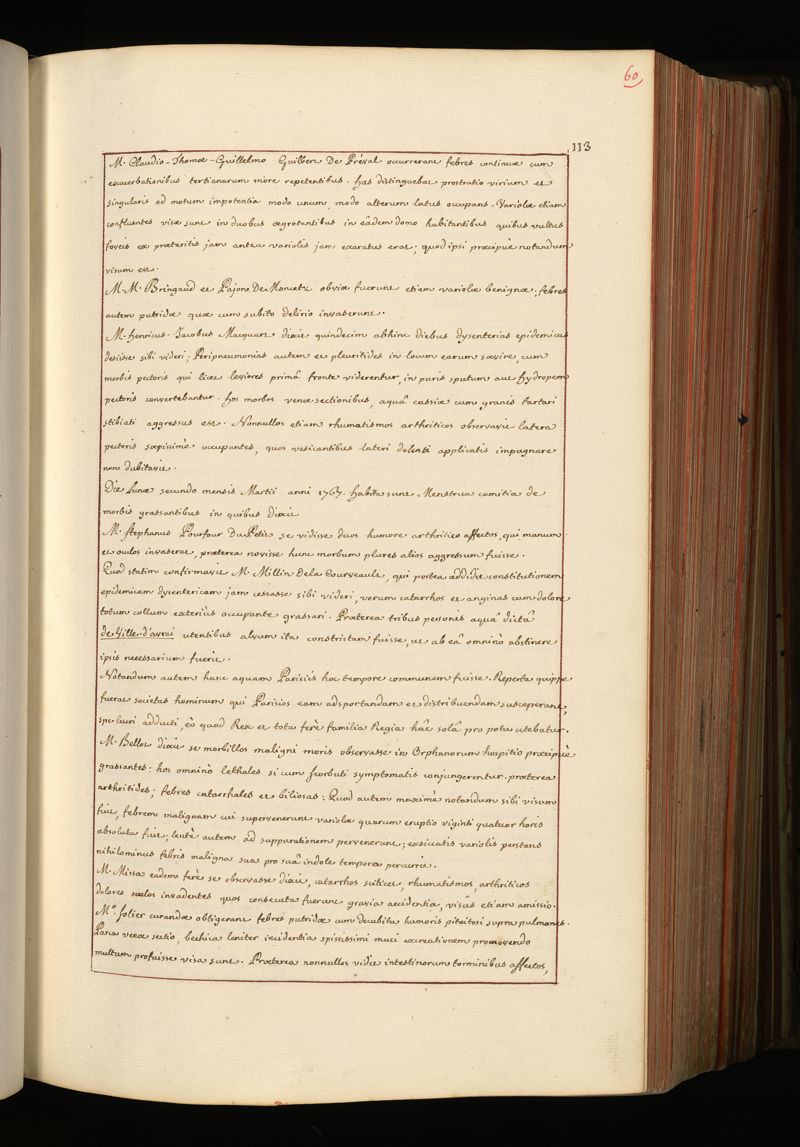 60
113
M. Claudio-Thomæ-Guillelmo Guilbert De Préval occurrerunt febres continuæ cum
exacerbationibus tertianarum more repetentibus. has distinguebat prostratio virium et
singularis ad motum impotentia modo unum, modo alterum latus occupans. Variolæ etiam
confluentes visæ sunt in duobus ægrotantibus in eâdem domo habitantibus quibus vultus
foveis ex præteritis jam antea variolis jam exaratus erat; quod ipsi præcipuè notandum
visum est.
M.M. Bringaud et Pajon De Moncetz obviæ fuerunt etiam variolæ benignæ; febres
autem putridæ quæ cum subito delirio invaserunt.
M. henricus-Jacobus Macquart dixit quindecim abhinc diebus dysenterias epidemicas
desiisse sibi videri; Peripneumonias autem et pleuritides in locum earum sævire, cum
morbis pectoris qui licet leviores primâ fronte viderentur, in puris sputum aut hydropem
pectoris convertebantur. hos morbos venæ sectionibus, aquâ cassiæ cum granis tartari
stibiati aggressus est. Nonnullos etiam rhumatismos arthriticos observavit latera
pectoris sæpissimè occupantes, quos vesicantibus lateri dolenti applicatis impugnare
non dubitavit.
Die Lunæ secundo mensis Martii anni 1767. habita sunt Menstrua comitia de
morbis grassantibus in quibus dixit
M. Stephanus Pourfour Du Petit se vidisse duos humore arthritico affectos, qui manum
et oculos invaserat, præterea novisse hunc morbum plures alios aggressum fuisse.
Quod statim confirmavit M. Millin De la Courveault, qui postea addidit constitutionem
epidemicam dysentericam jam cessasse sibi videri, verum catarrhos et anginas cum dolore
totum collum exteriùs occupante grassari. Præterea tribus personis aquâ dictâ
de Ville-d'avrai utentibus alvum ita constrictam fuisse, ut ab eâ omninò abstinere
ipsis necessarium fuerit.
Notandum autem hanc aquam Parisiis hoc tempore communem fuisse. Reperta quippe
fuerat societas hominum qui Parisios eam adsportandam et distribuendam susceperant,
spe lucri adducti, eò quod Rex et tota ferè familia Regia hâc solâ pro potu utebatur.
M. Bellot dixit se morbillos maligni moris observasse in Orphanorum hospitio præcipuè
grassantes: hos omninò lethales si cum scorbuti symptomatis conjungerentur. præterea
arthritides; febres catarrhales et biliosas: Quod autem maximè notandum sibi visum
fuit, febrem malignam cui supervenerunt variolæ quarum eruptio viginti quatuor horis
absoluta fuit; lentè autem ad suppurationem pervenerunt; exsiccatis variolis perstans
nihilominus febris maligna sua pro suâ indole tempora percurrit.
M. Missa eadem ferè se observasse dixit, catarrhos scilicet, rhumatismos, arthriticos
dolores oculos invadentes quos consecuta fuerunt gravia accidentia, visûs etiam amissio.
M.º Solier curandæ obtigerunt febres putridæ cum decubitu humoris pituitosi supra pulmones.
Parca venæ sectio, bechica leniter incidentia spississimi muci excreationem promovendo
multum profuisse visa sunt. Præterea nonnullos vidit intestinorum torminibus affectos,